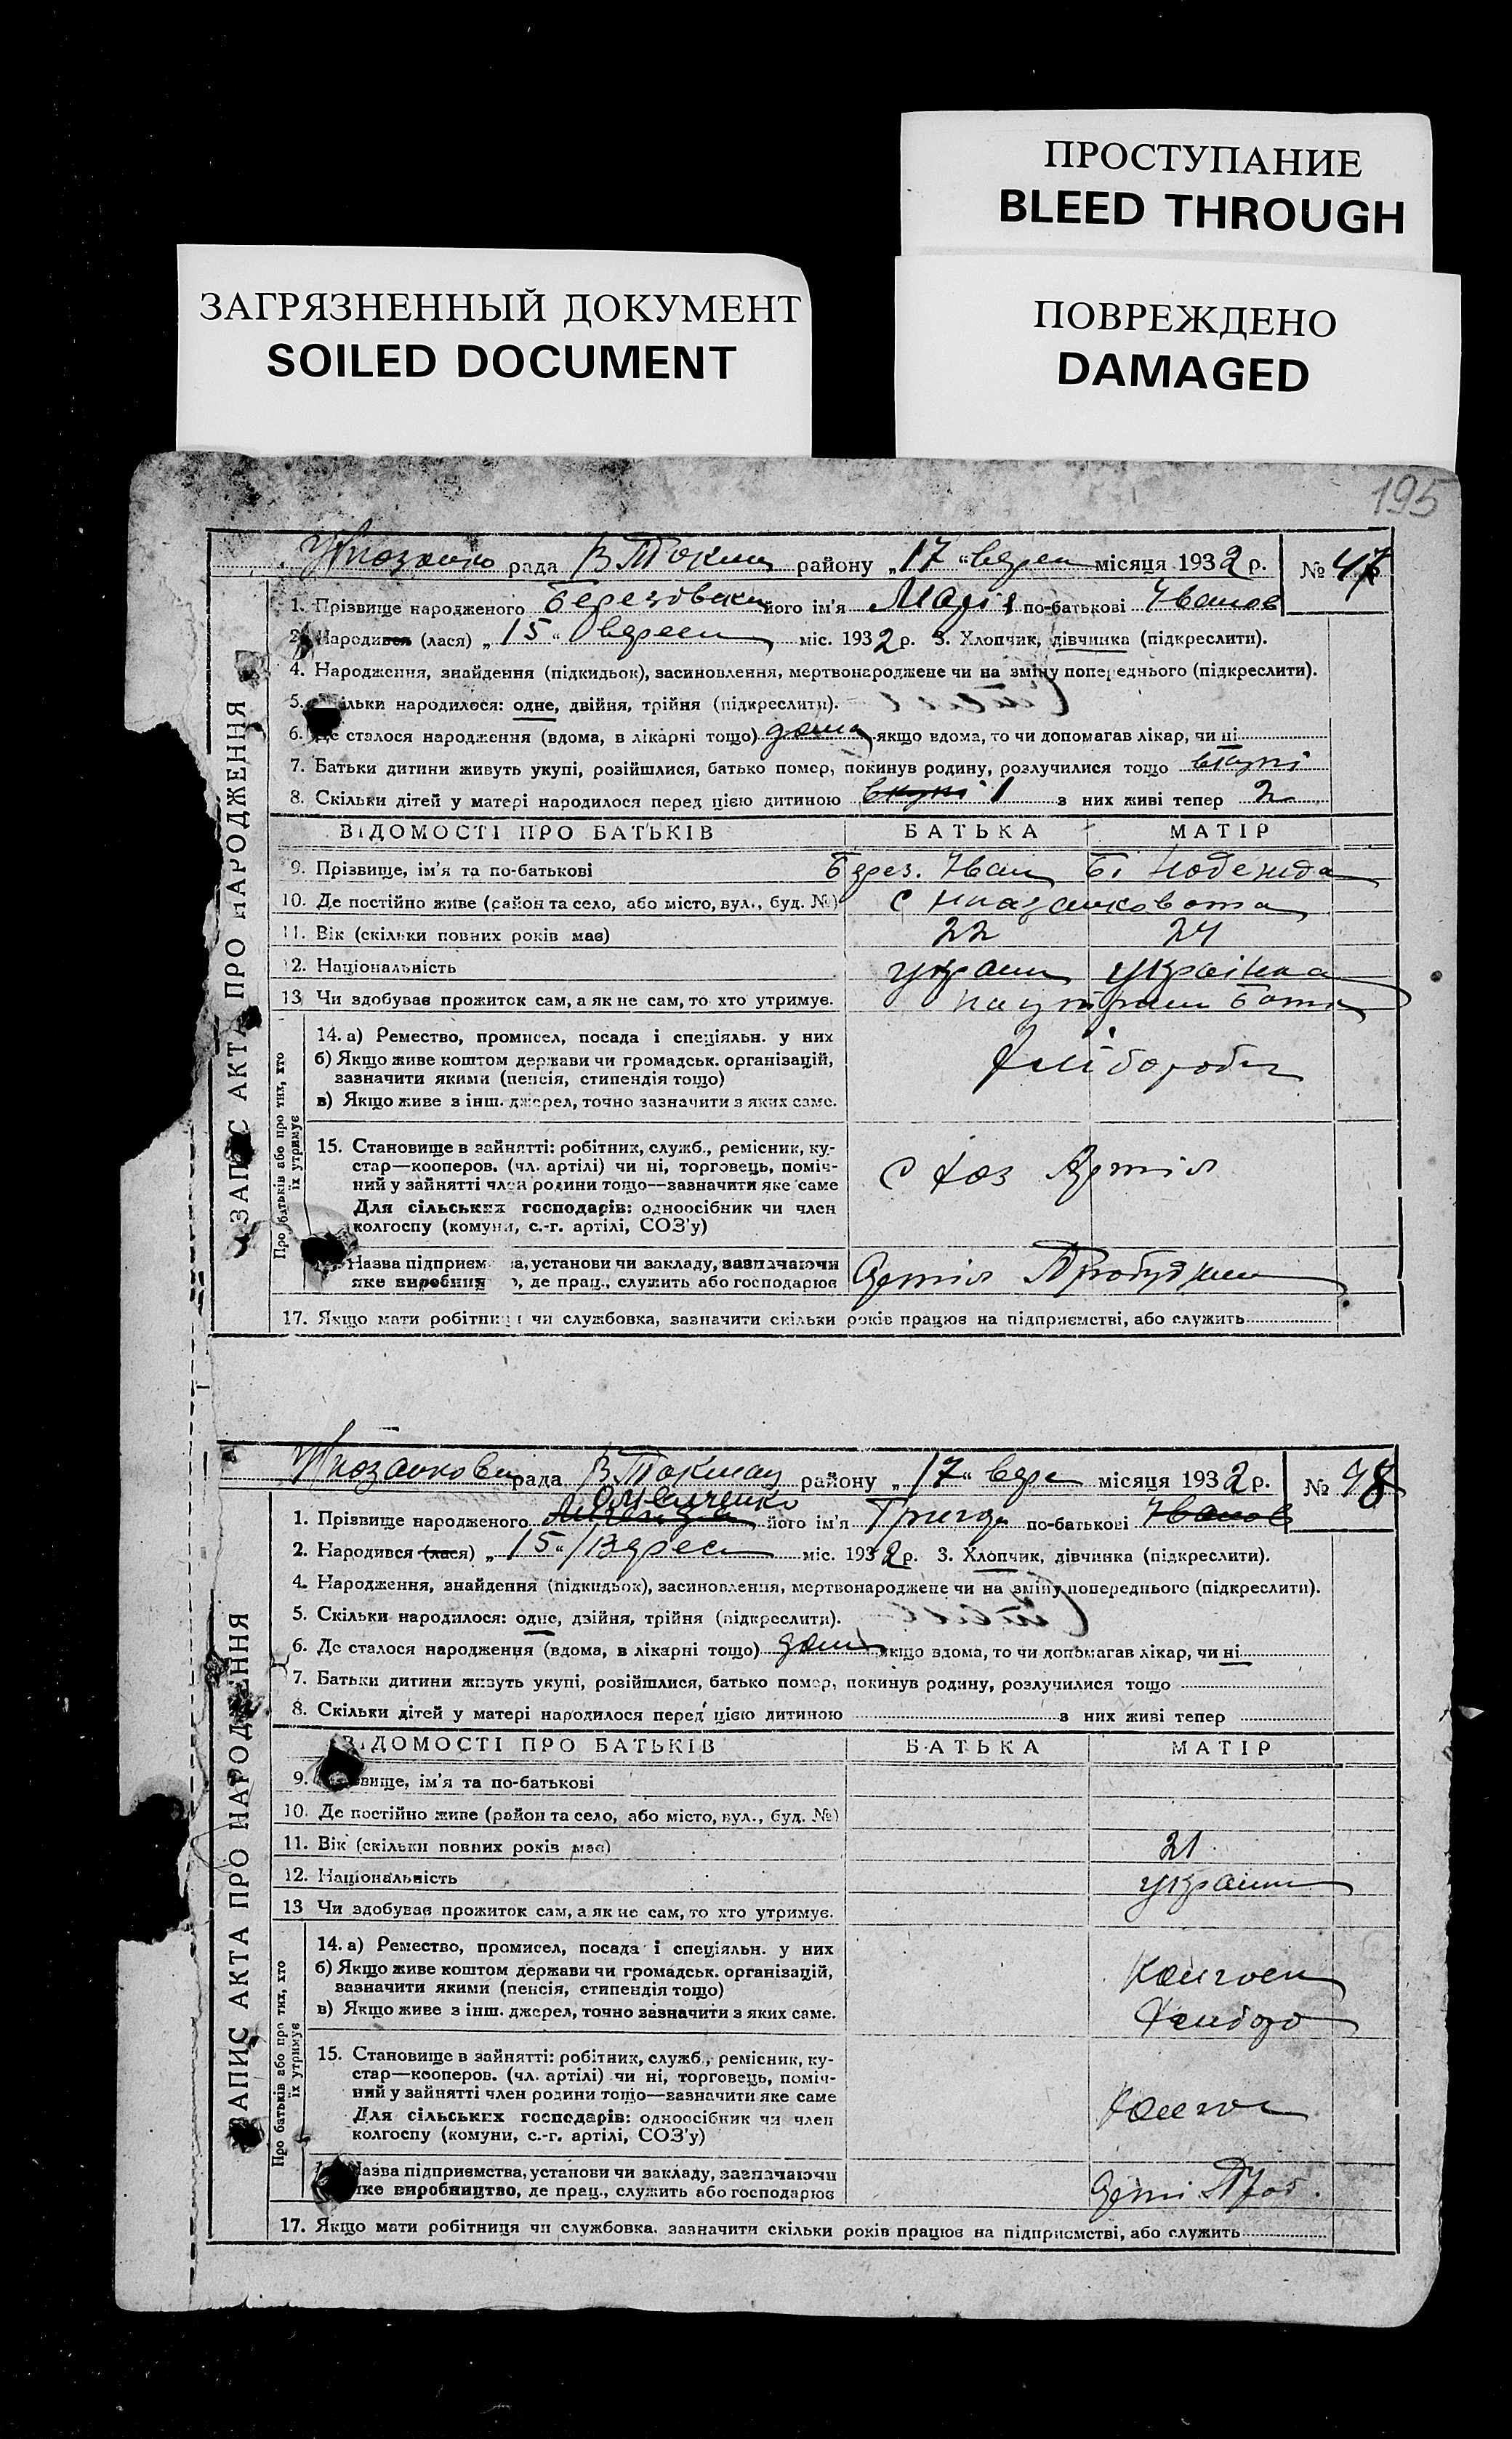 ПРОСТУПАНИЕ
BLEED THROUGH
ЗАГРЯЗНЕННЫЙ ДОКУМЕНТ
SOILED DOCUMENT
ПОВРЕЖДЕНО
DAMAGED
195
рада В Токма району „17 “ верес місяця 1932 р. № 47
1. Прізвище народженого його ім'я Марія по-батькові Іванов
2. Народився (лася) „ 15 “ верес міс. 1932 р. 3. Хлопчик, дівчинка (підкреслити).
4. Народження, знайдення (підкидьок), засиновлення, мертвонароджене чи на зміну попереднього (підкреслити).
5. ільки народилося: одне, двійня, трійня (підкреслити).
6. Де сталося народження (вдома, в лікарні тощо) дома якщо вдома, то чи допомагав лікар, чи ні
7. Батьки дитини живуть укупі, розійшлися, батько помер, покинув родину, розлучилися тощо вкупі
8. Скільки дітей у матері народилося перед цією дитиною вкупі 1 з них живі тепер 2
ЗАПИС АКТА ПРО НАРОДЖЕННЯ
ВІДОМОСТІ ПРО БАТЬКІВ БАТЬКА МАТІР
9. Прізвище, ім'я та по-батькові Берез. Іван Б. Надежда
10. Де постійно живе (район та село, або місто, вул., буд. №) с
11. Вік (скільки повних років має) 22 24
12. Національність україн українка
13 Чи здобуває прожиток сам, а як не сам, то хто утримує.
Про батьків або про тих, хто їх утримує
14. а) Ремество, промисел, посада і спеціяльн. у них
б) Якщо живе коштом держави чи громадськ. організацій,
зазначити якими (пенсія, стипендія тощо)
в) Якщо живе з інш. джерел, точно зазначити з яких саме.
15. Становище в зайнятті: робітник, служб., ремісник, ку-
стар—кооперов. (чл. артілі) чи ні, торговець, поміч-
ний у зайнятті член родини тощо—зазначити яке саме
Для сільських господарів: одноосібник чи член
колгоспу (комуни, с.-г. артілі, СОЗ'у)
Назва підприєм а, установи чи закладу, зазначаючи
яке виробниц о, де прац., служить або господарює
17. Якщо мати робітниця чи службовка, зазначити скільки років працює на підприємстві, або служить
рада В. Токмац району „ 17 “ вере місяця 1932 р. № 48
Омельченко
1. Прізвище народженого його ім'я Григор по-батькові Іванов
2. Народився (лася) „ 15 “ Верес міс. 1932 р. 3. Хлопчик, дівчинка (підкреслити).
4. Народження, знайдення (підкидьок), засиновлення, мертвонароджене чи на зміну попереднього (підкреслити).
5. Скільки народилося: одне, двійня, трійня (підкреслити).
6. Де сталося народження (вдома, в лікарні тощо) дома якщо вдома, то чи допомагав лікар, чи ні
7. Батьки дитини живуть укупі, розійшлися, батько помер, покинув родину, розлучилися тощо
8. Скільки дітей у матері народилося перед цією дитиною з них живі тепер
ЗАПИС АКТА ПРО НАРОДЖЕННЯ
ВІДОМОСТІ ПРО БАТЬКІВ БАТЬКА МАТІР
9. звище, ім'я та по-батькові
10. Де постійно живе (район та село, або місто, вул., буд. №)
11. Вік (скільки повних років має) 21
12. Національність україн
13 Чи здобуває прожиток сам, а як не сам, то хто утримує.
Про батьків або про тих, хто їх утримує
14. а) Ремество, промисел, посада і спеціяльн. у них
б) Якщо живе коштом держави чи громадськ. організацій,
зазначити якими (пенсія, стипендія тощо)
в) Якщо живе з інш. джерел, точно зазначити з яких саме.
15. Становище в зайнятті: робітник, служб., ремісник, ку-
стар—кооперов. (чл. артілі) чи ні, торговець, поміч-
ний у зайнятті член родини тощо—зазначити яке саме
Для сільських господарів: одноосібник чи член
колгоспу (комуни, с.-г. артілі, СОЗ'у)
Назва підприємства, установи чи закладу, зазначаючи
яке виробництво, де прац., служить або господарює
17. Якщо мати робітниця чи службовка. зазначити скільки років працює на підприємстві, або служить